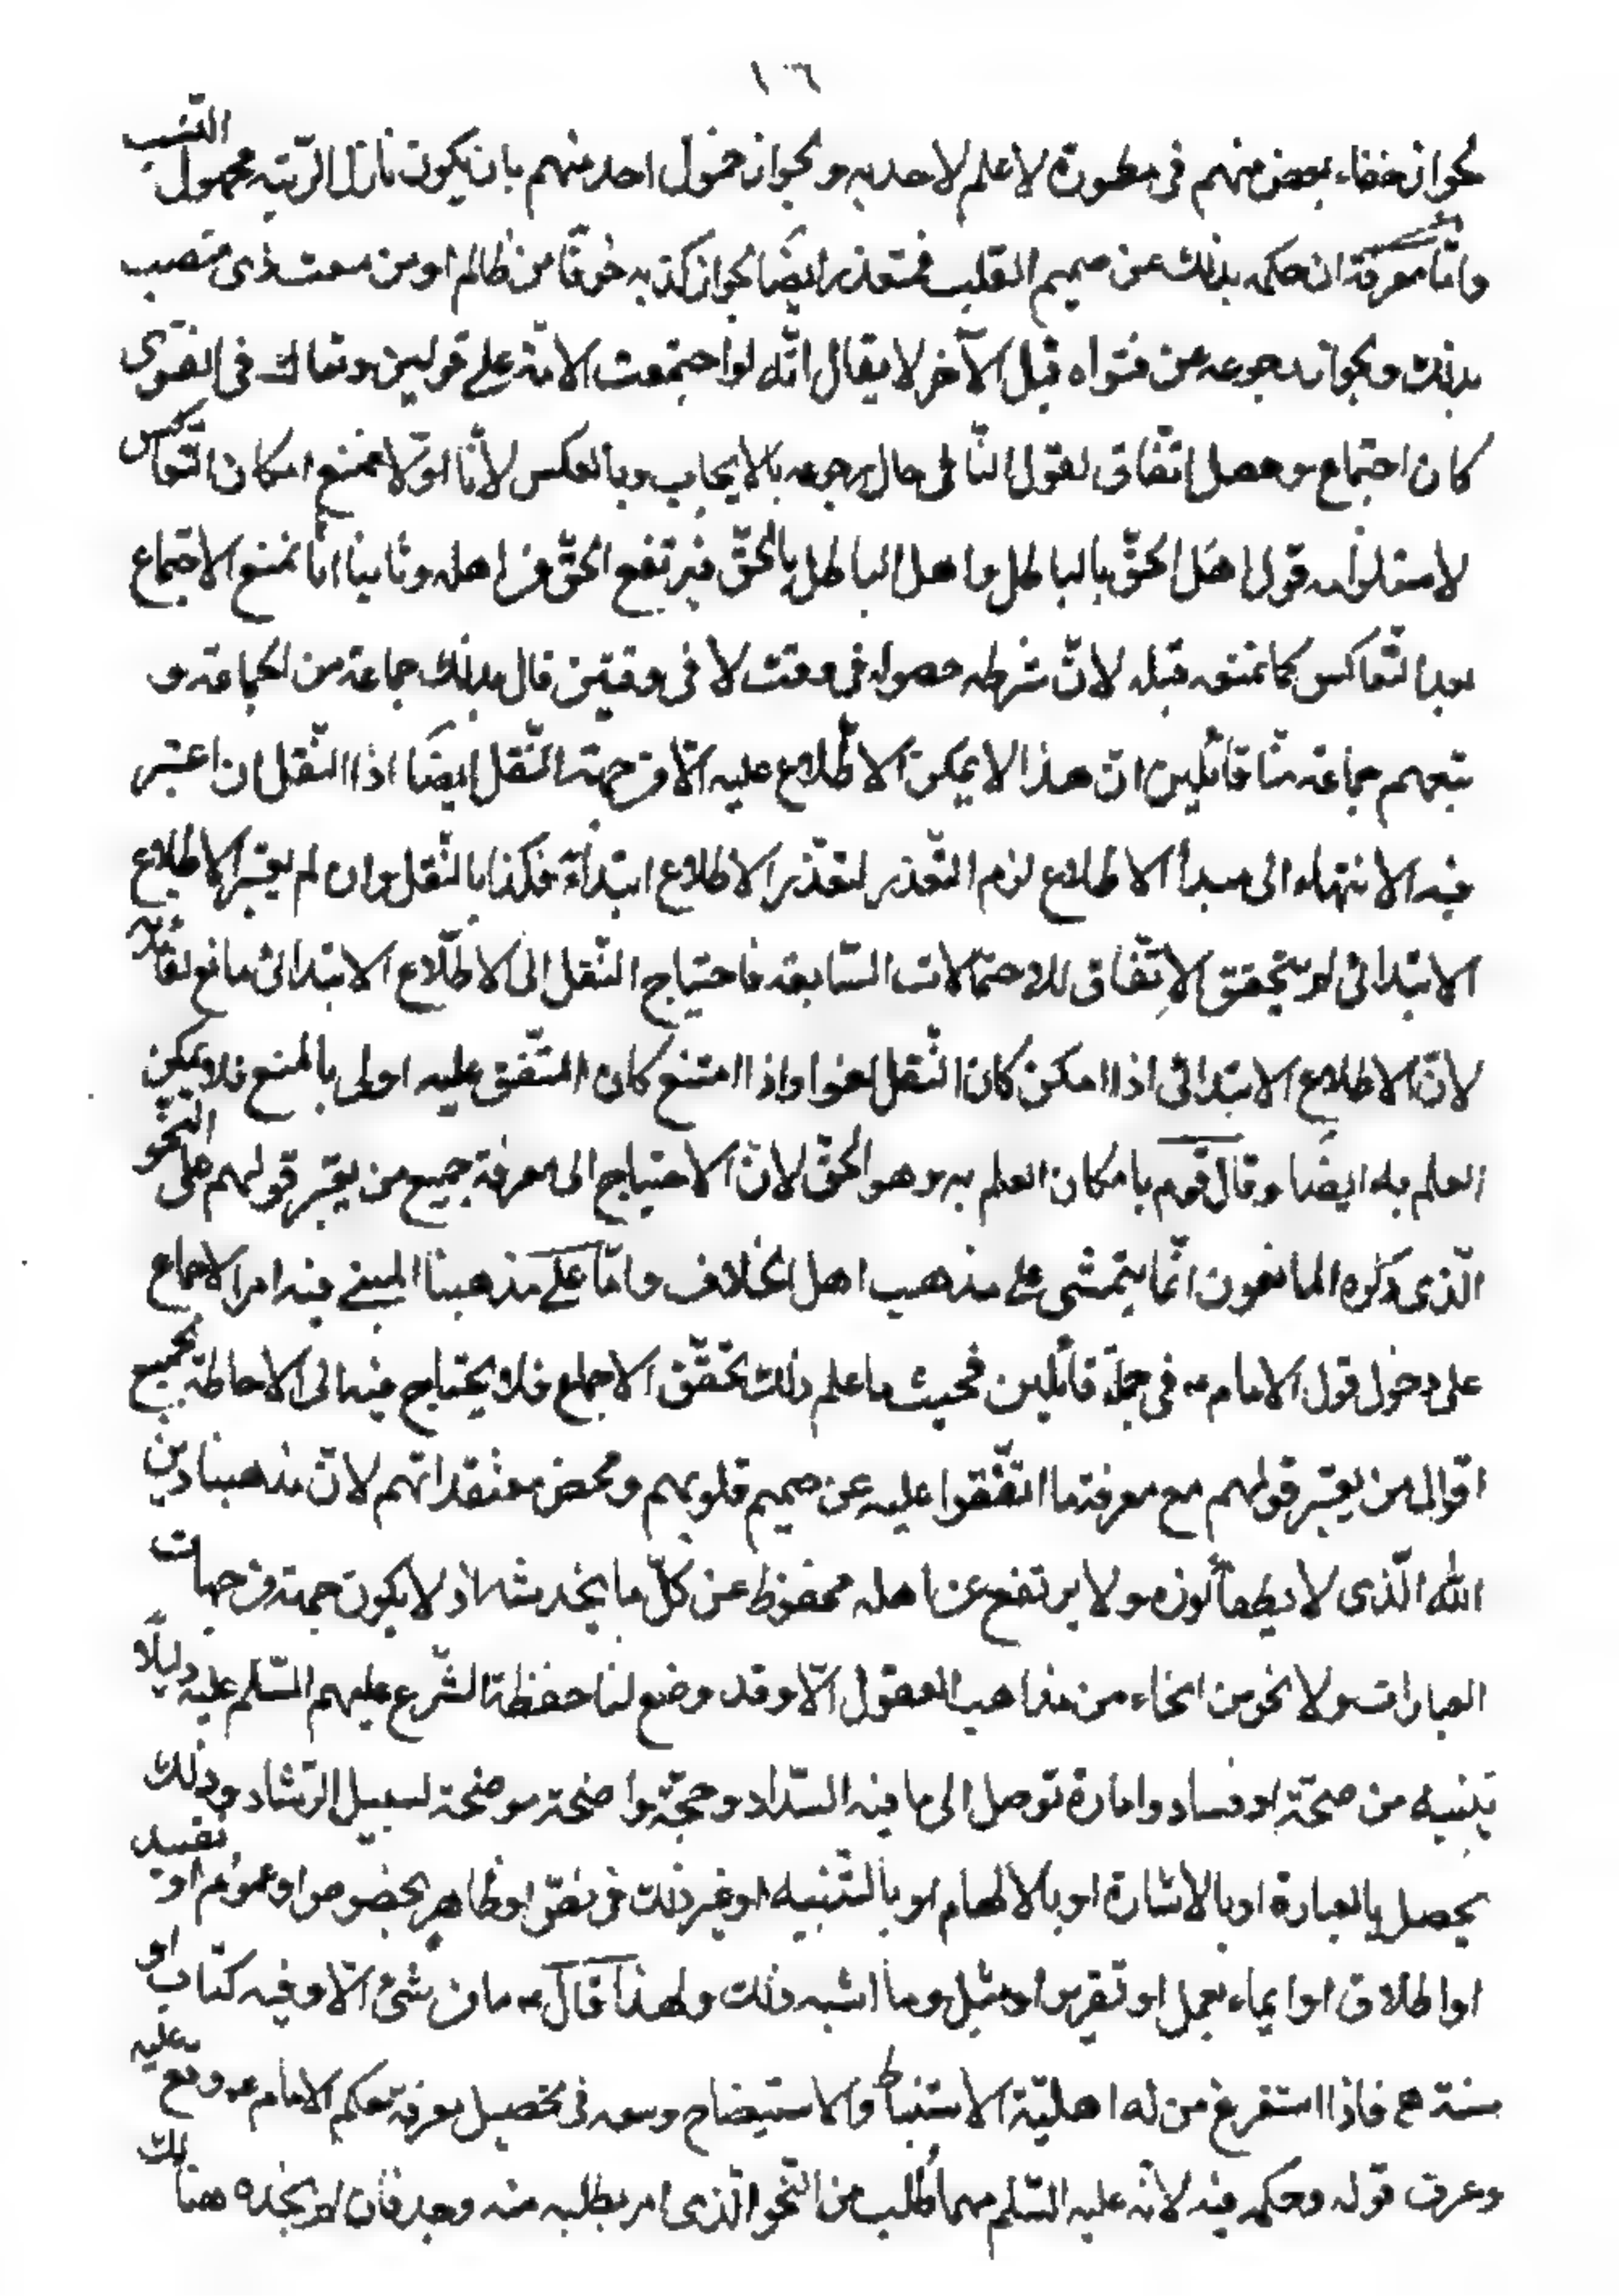 ١٦
لجواز خفاء بعض منهم فى مطمورة لا علم لاحد به و لجواز خمول احد منهم بان يكون نازل الرّتبة مجهول النّسب
وامّا معرفة ان حكمه بذلك عن صميم القلب فمتعذر ايضًا لجواز كذبه خوفًا من ظالم او من سمت ذى منصب
بذلك و لجواز رجوعه عن فتواه قبل الآخر لا يقال انّه لو اجتمعت الامّة على قولين و تعاكسـ فى الفتوى
كان اجتماع و حصل اتّفاق لقول الثّانى حال رجوعه بالايجاب و بالعكس لأنّا اوّلا نمنع امكان التّعاكس
لاستلزامه قول اهل الحقّ بالباطل و اهل الباطل بالحقّ فيرتفع الحقّ من اهله و ثانيا انّا نمنع الاجتماع
بعد التّعاكس كما نمنعه قبله لانّ شرطه حصوله فى وقت لا فى وقتين قال بذلك جماعة من الجماعة و
تبعهم جماعة منّا قائلين انّ هذا لا يمكن الاطّلاع عليه الّا من جهة النّقل ايضًا اذا النّقل ان اعتبر
فيه الانتهاء الى مبدأ الاطلاع لزم التّعذر لتعذّر الاطلاع ابتدأءً فكذا بالنّقل وان لم يعتبر الاطلاع
الابتدائى لم يتحقق الاِتّفاق للاحتمالات السّابقة فاحتياج النّقل الى الاطّلاع الابتدائى مانع لفائدته
لانّ الاطلاع الابتدائى اذا امكن كان النّقل لغوا و اذا امتنع كان المتّفق عليه اولى بالمنع فلا يمكن
العلم به ايضًا و قال قوم بامكان العلم به و هو الحقّ لانّ الاحتياج الى معرفة جميع من يعتبر قولهم على النّحو
الّذى ذكره المانعون انّما يتمشى على مذهب اهل الخلاف و امّا على مذهبنا المبنى فيه امر الاجماع
على دخول قول الامام ع فى جملة قائلين فحيث ما علم ذلك تحقّق الاجماع فلا يحتاج فيه الى الاحاطة بجميع
اقوال من يعتبر قولهم مع معرفة ما اتّفقوا عليه عن صميم قلوبهم و محض معتقداتهم لانّ مذهبنا دين
الله الّذى لا يطفأ نوره و لا يرتفع عن اهله محفوظ عن كلّ ما يخدشه اذ لا يكون جهة من جهات
العبارات و لا نحو من انحاء من مذاهب العقول الّا و قد وضع لنا حفظة الشّرع عليهم السّلم عليه دليلًا
تبنيه من صحّة او فساد و امارة توصل الى ما فيه السّداد و حجّة واضحة موضحة لسبيل الرّشاد و ذلك
يحصل بالعبارة او بالاشارة او بالالهام او بالتّنبيه او غير ذلك من نصّ او ظاهر بخصوص او عموم او تقييد
او اطلاق او ايماء بعمل او تقرير او مثل و ما اشبه ذلك و لهذا قال ع ما من شئ الّا و فيه كتاب او
سنة فاذا استفرغ من له اهليّة الاستنباط و الاستيضاح وسعه فى تحصيل معرفة حكم الامام ع وقع عليه
و عرف قوله و حكمه فيه لانّه عليه السّلم مهما طُلب من النّحو الّذى امر بطلبه منه وجد فان لم يجده هنالك